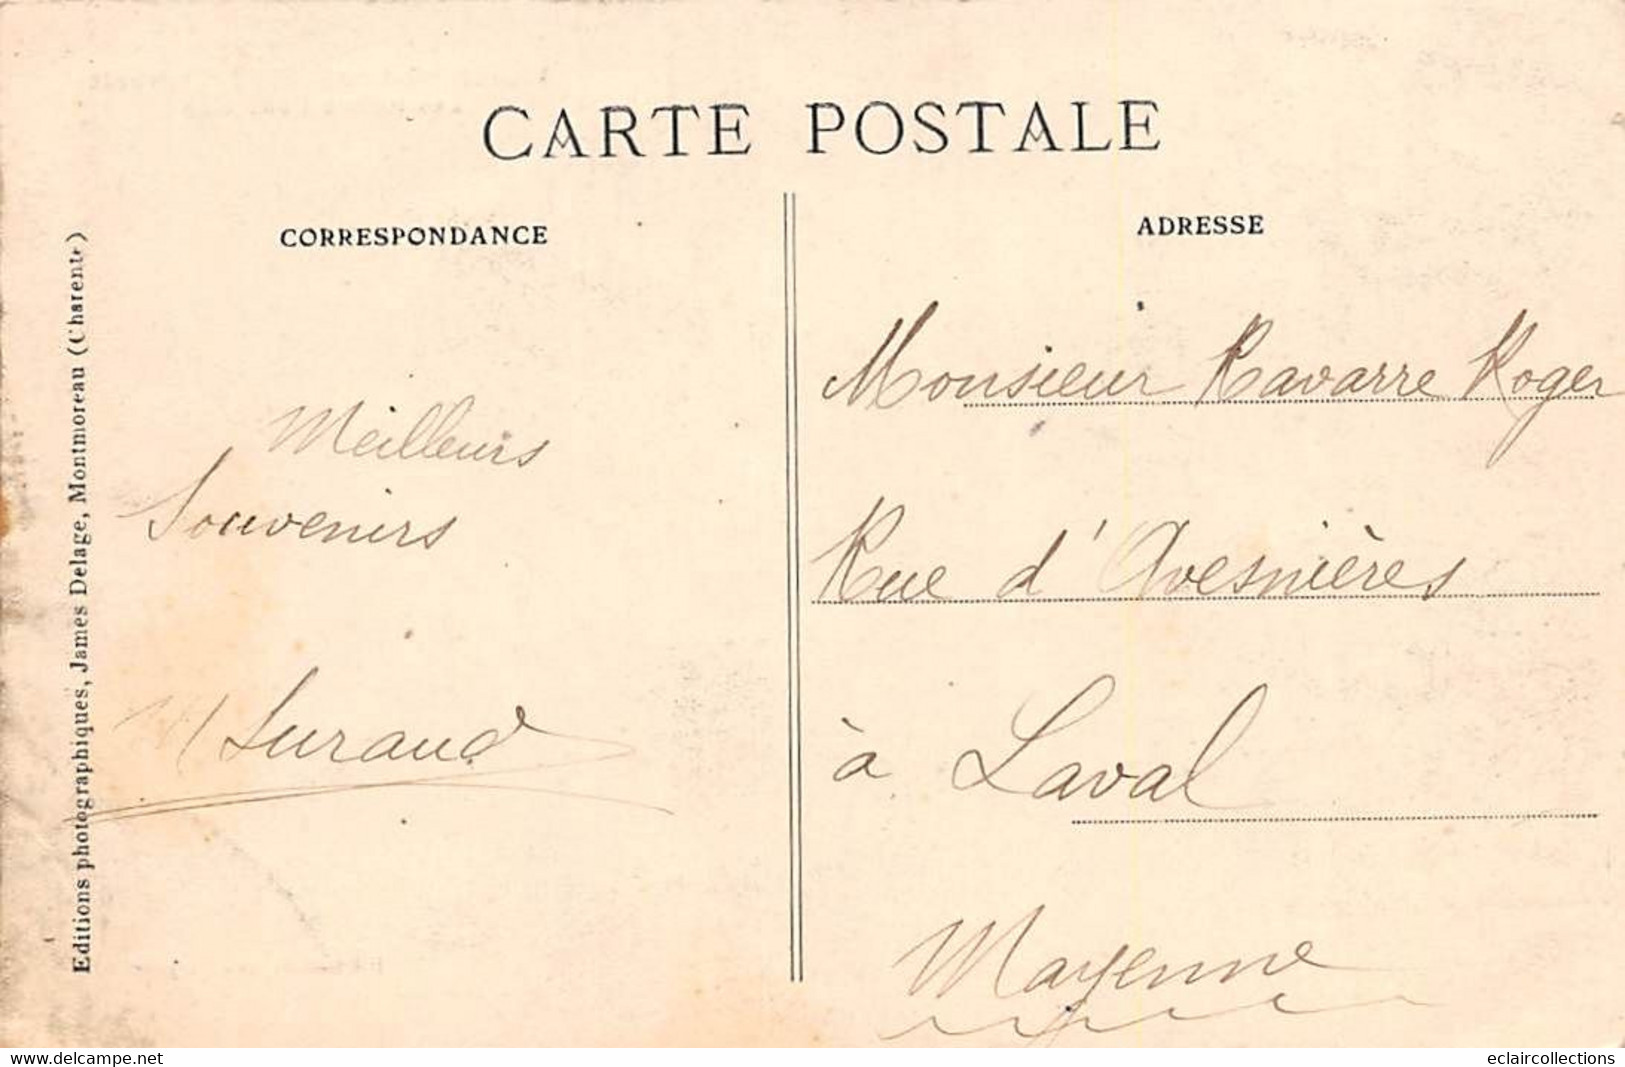 CARTE POSTALE
CORRESPONDANCE
ADRESSE
Editions photographiques, James Delage, Montmoreau (Charente)
Meilleurs
Souvenirs
M Suraud
Monsieur Ravarre Roger
Rue d'Avesnières
à Laval
Mayenne
www.delcampe.net
eclaircollections